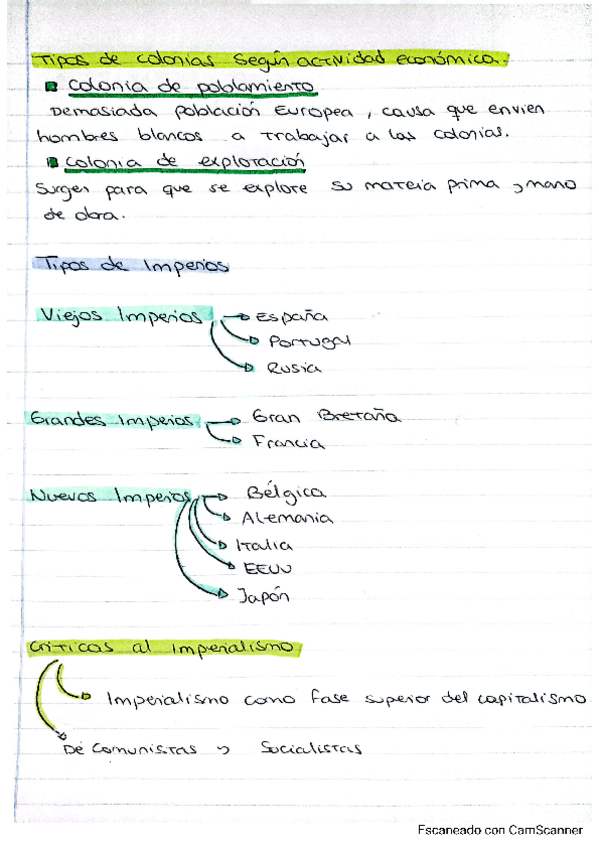 Tipos de colonias según actividad económica.
Colonia de poblamiento
Demasiada población Europea, causa que envien
hombres blancos a trabajar a las colonias.
Colonia de exploración
Surgen para que se explore su materia prima y mano
de obra.
Tipos de Imperios
Viejos Imperios España
Portugal
Rusia
Grandes Imperios Gran Bretaña
Francia
Nuevos Imperios Bélgica
Alemania
Italia
EEUU
Japón
Críticas al imperialismo
Imperialismo como fase superior del capitalismo
De Comunistas y Socialistas
Escaneado con CamScanner